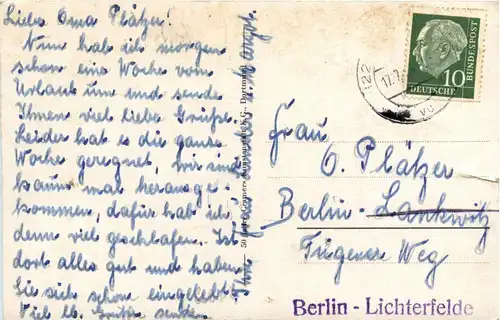 Liebe Oma Plätzer!
Nun hab ich morgen
schon eine Woche vom
Urlaub um und sende
Ihnen viel liebe Grüße.
Leider hat es die ganze
Woche geregnet, wir sind
kaum mal herausge-
kommen, dafür hab ich
denn viel geschlafen. Ist
dort alles gut und haben
Sie sich schon eingelebt?
Viel lb. Grüße senden
Ihnen
u. Margr.
DEUTSCHE
BUNDESPOST
10
(22
17.7.
Frau
O. Plätzer
Berlin-Lankwitz
Weg
Berlin - Lichterfelde